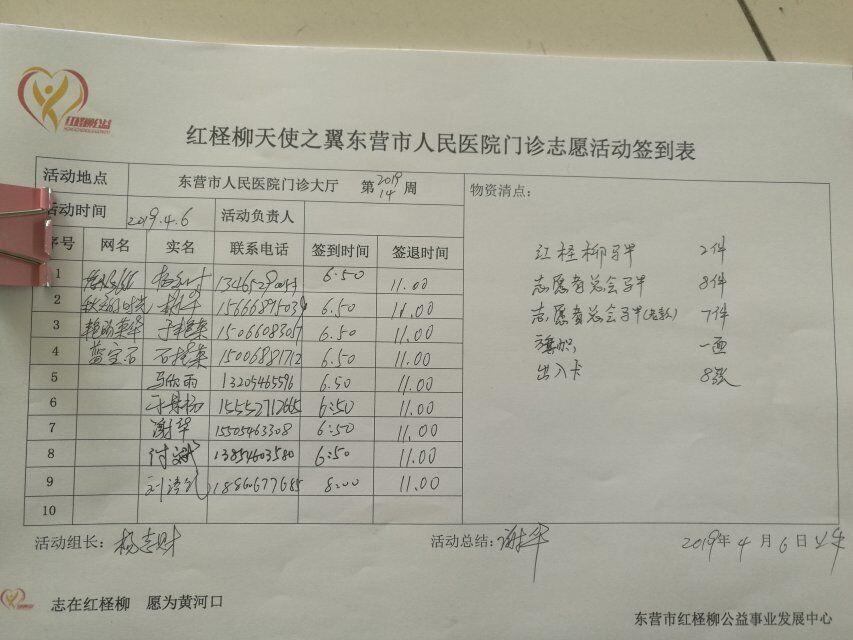 红柽柳公益
红柽柳天使之翼东营市人民医院门诊志愿活动签到表
活动地点 东营市人民医院门诊大厅 第2019 14周 物资清点：
活动时间 2019.4.6 活动负责人
序号 网名 实名 联系电话 签到时间 签退时间
1 6.50 11.00
2 6.50 11.00
3 15066083067 6.50 11.00
4 蓝宝石 15006881712 6.50 11.00
5 马欣雨 13205465596 6.50 11.00
6 15552712665 6:50 11.00
7 谢华 15505463308 6:50 11.00
8 付斌 13854603580 6:50 11.00
9 18860677685 8:00 11.00
10
红柽柳马甲 2件
志愿者总会马甲 8件
志愿者总会马甲 7件
旗帜 一面
出入卡 8张
活动组长：杨志财 活动总结：谢华 2019年4月6日上午
志在红柽柳 愿为黄河口
东营市红柽柳公益事业发展中心